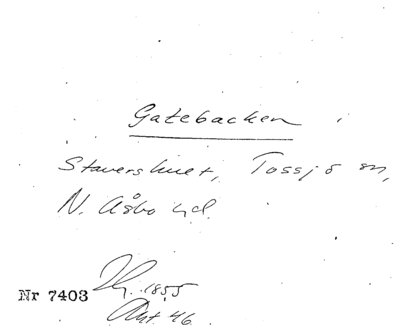 Gatebacken
Stavershult, Tossjö sn,
N. Åsbo hd.
1855
Nr 7403
Akt. 46.